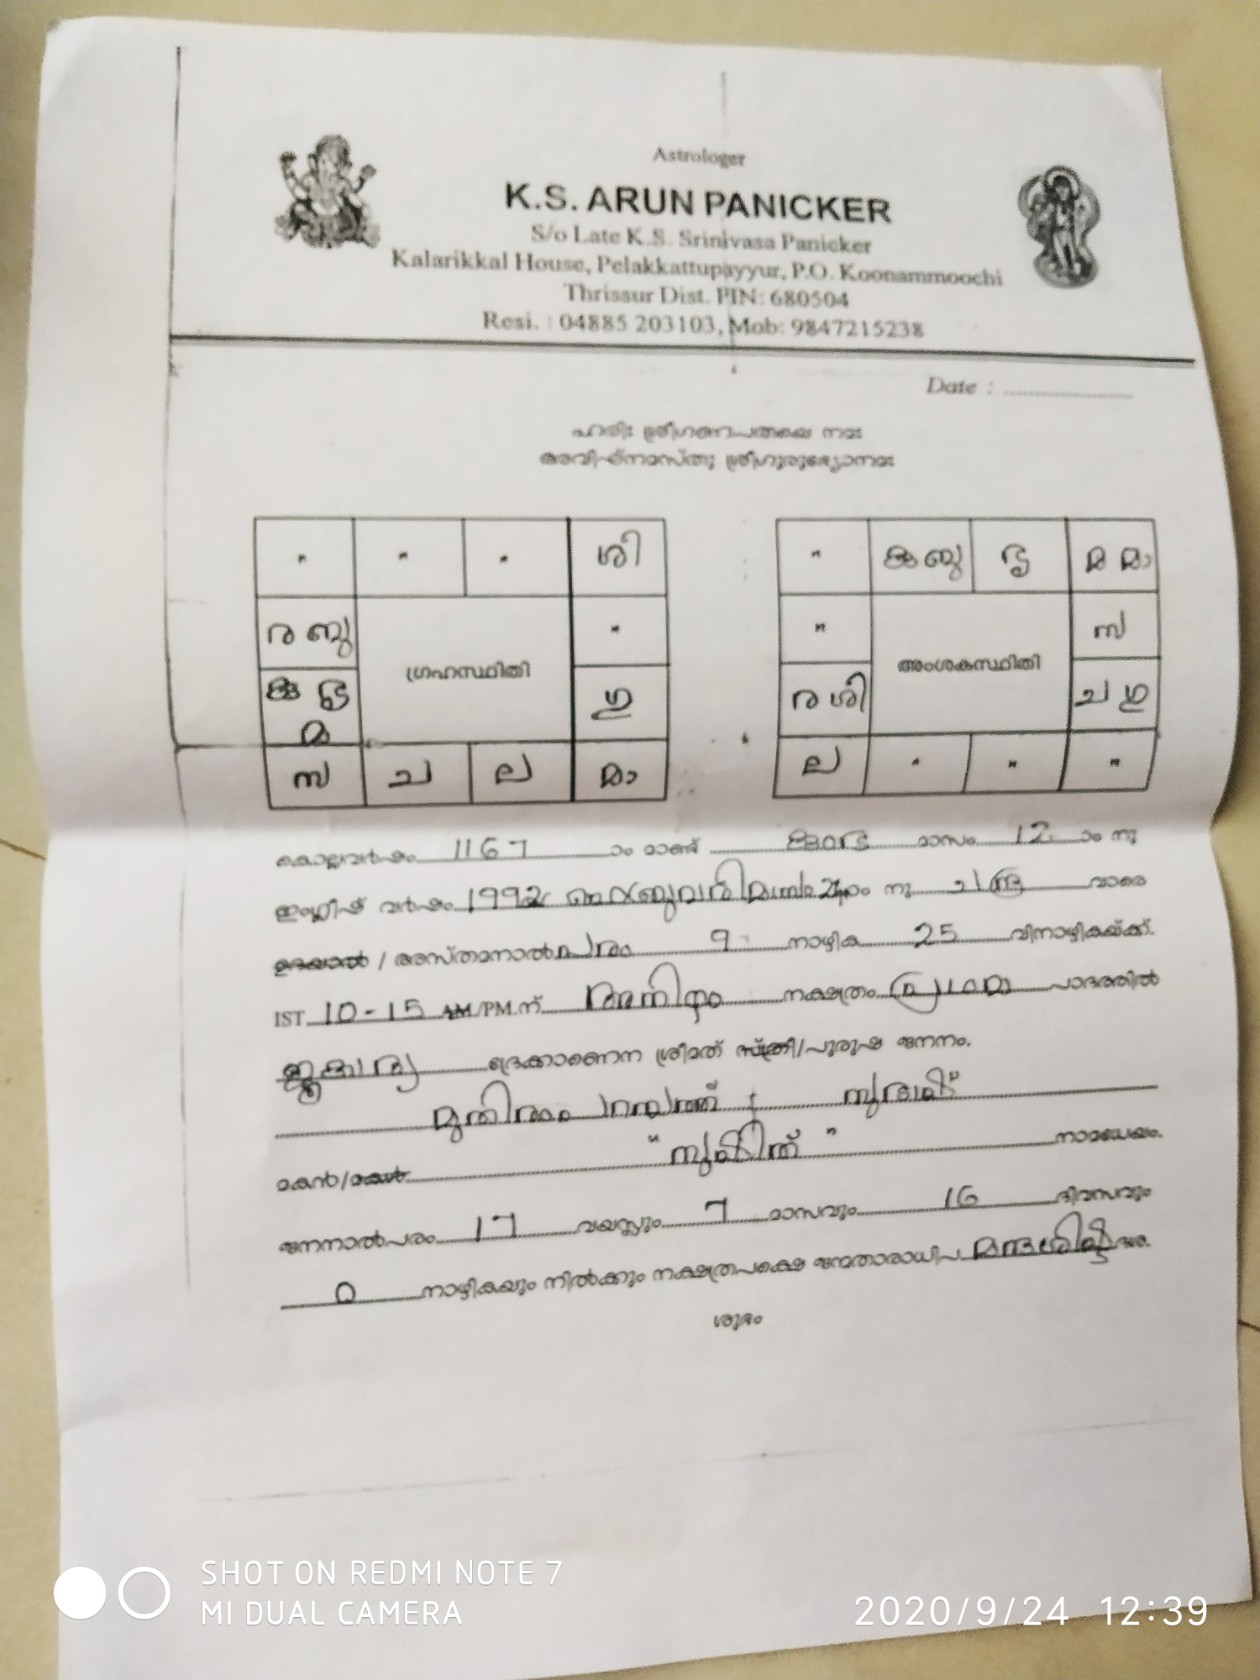 Astrologer
K.S. ARUN PANICKER
S/o Late K.S. Srinivasa Panicker
Kalarikkal House, Pelakkattupayyur, P.O. Koonammoochi
Thrissur Dist. PIN: 680504
Resi. : 04885 203103, Mob: 9847215238
Date : ..................
ഹരിഃ ശ്രീഗണപതയെ നമഃ
അവിഘ്നമസ്തു ശ്രീഗുരുഭ്യോനമഃ
" " " ശി
ര ബു "
ഗ്രഹസ്ഥിതി
കു ശു മ ഗു
സ ച ല മാ
" കു ബു ശു മ മാ
" സ
അംശകസ്ഥിതി
ര ശി ച ഗു
ല " " "
കൊല്ലവർഷം 1167 ാം മാണ്ട് കുംഭ മാസം 12 ാം നു
ഇംഗ്ലീഷ് വർഷം 1992 ഫെബ്രുവരി മാസം 24 ാം നു ചന്ദ്ര വാരെ
ഉദയാൽ / അസ്തമനാൽ പരം 9 നാഴിക 25 വിനാഴികയ്ക്ക്.
IST 10-15 AM/PM.ന് അനിഴം നക്ഷത്രം പ്രഥമ പാദത്തിൽ
ദ്രേക്കാണെന ശ്രീമത് സ്ത്രീ/പുരുഷ ജനനം.
മകൻ/മകൾ "സുജിത്" നാമധേയം.
ജനനാൽപരം 17 വയസ്സും 7 മാസവും 16 ദിവസവും
0 നാഴികയും നിൽക്കും നക്ഷത്രപക്ഷെ ജന്മതാരാധിപ മന്ദശിഷ്ട ദശ.
ശുഭം
SHOT ON REDMI NOTE 7
MI DUAL CAMERA
2020/9/24 12:39